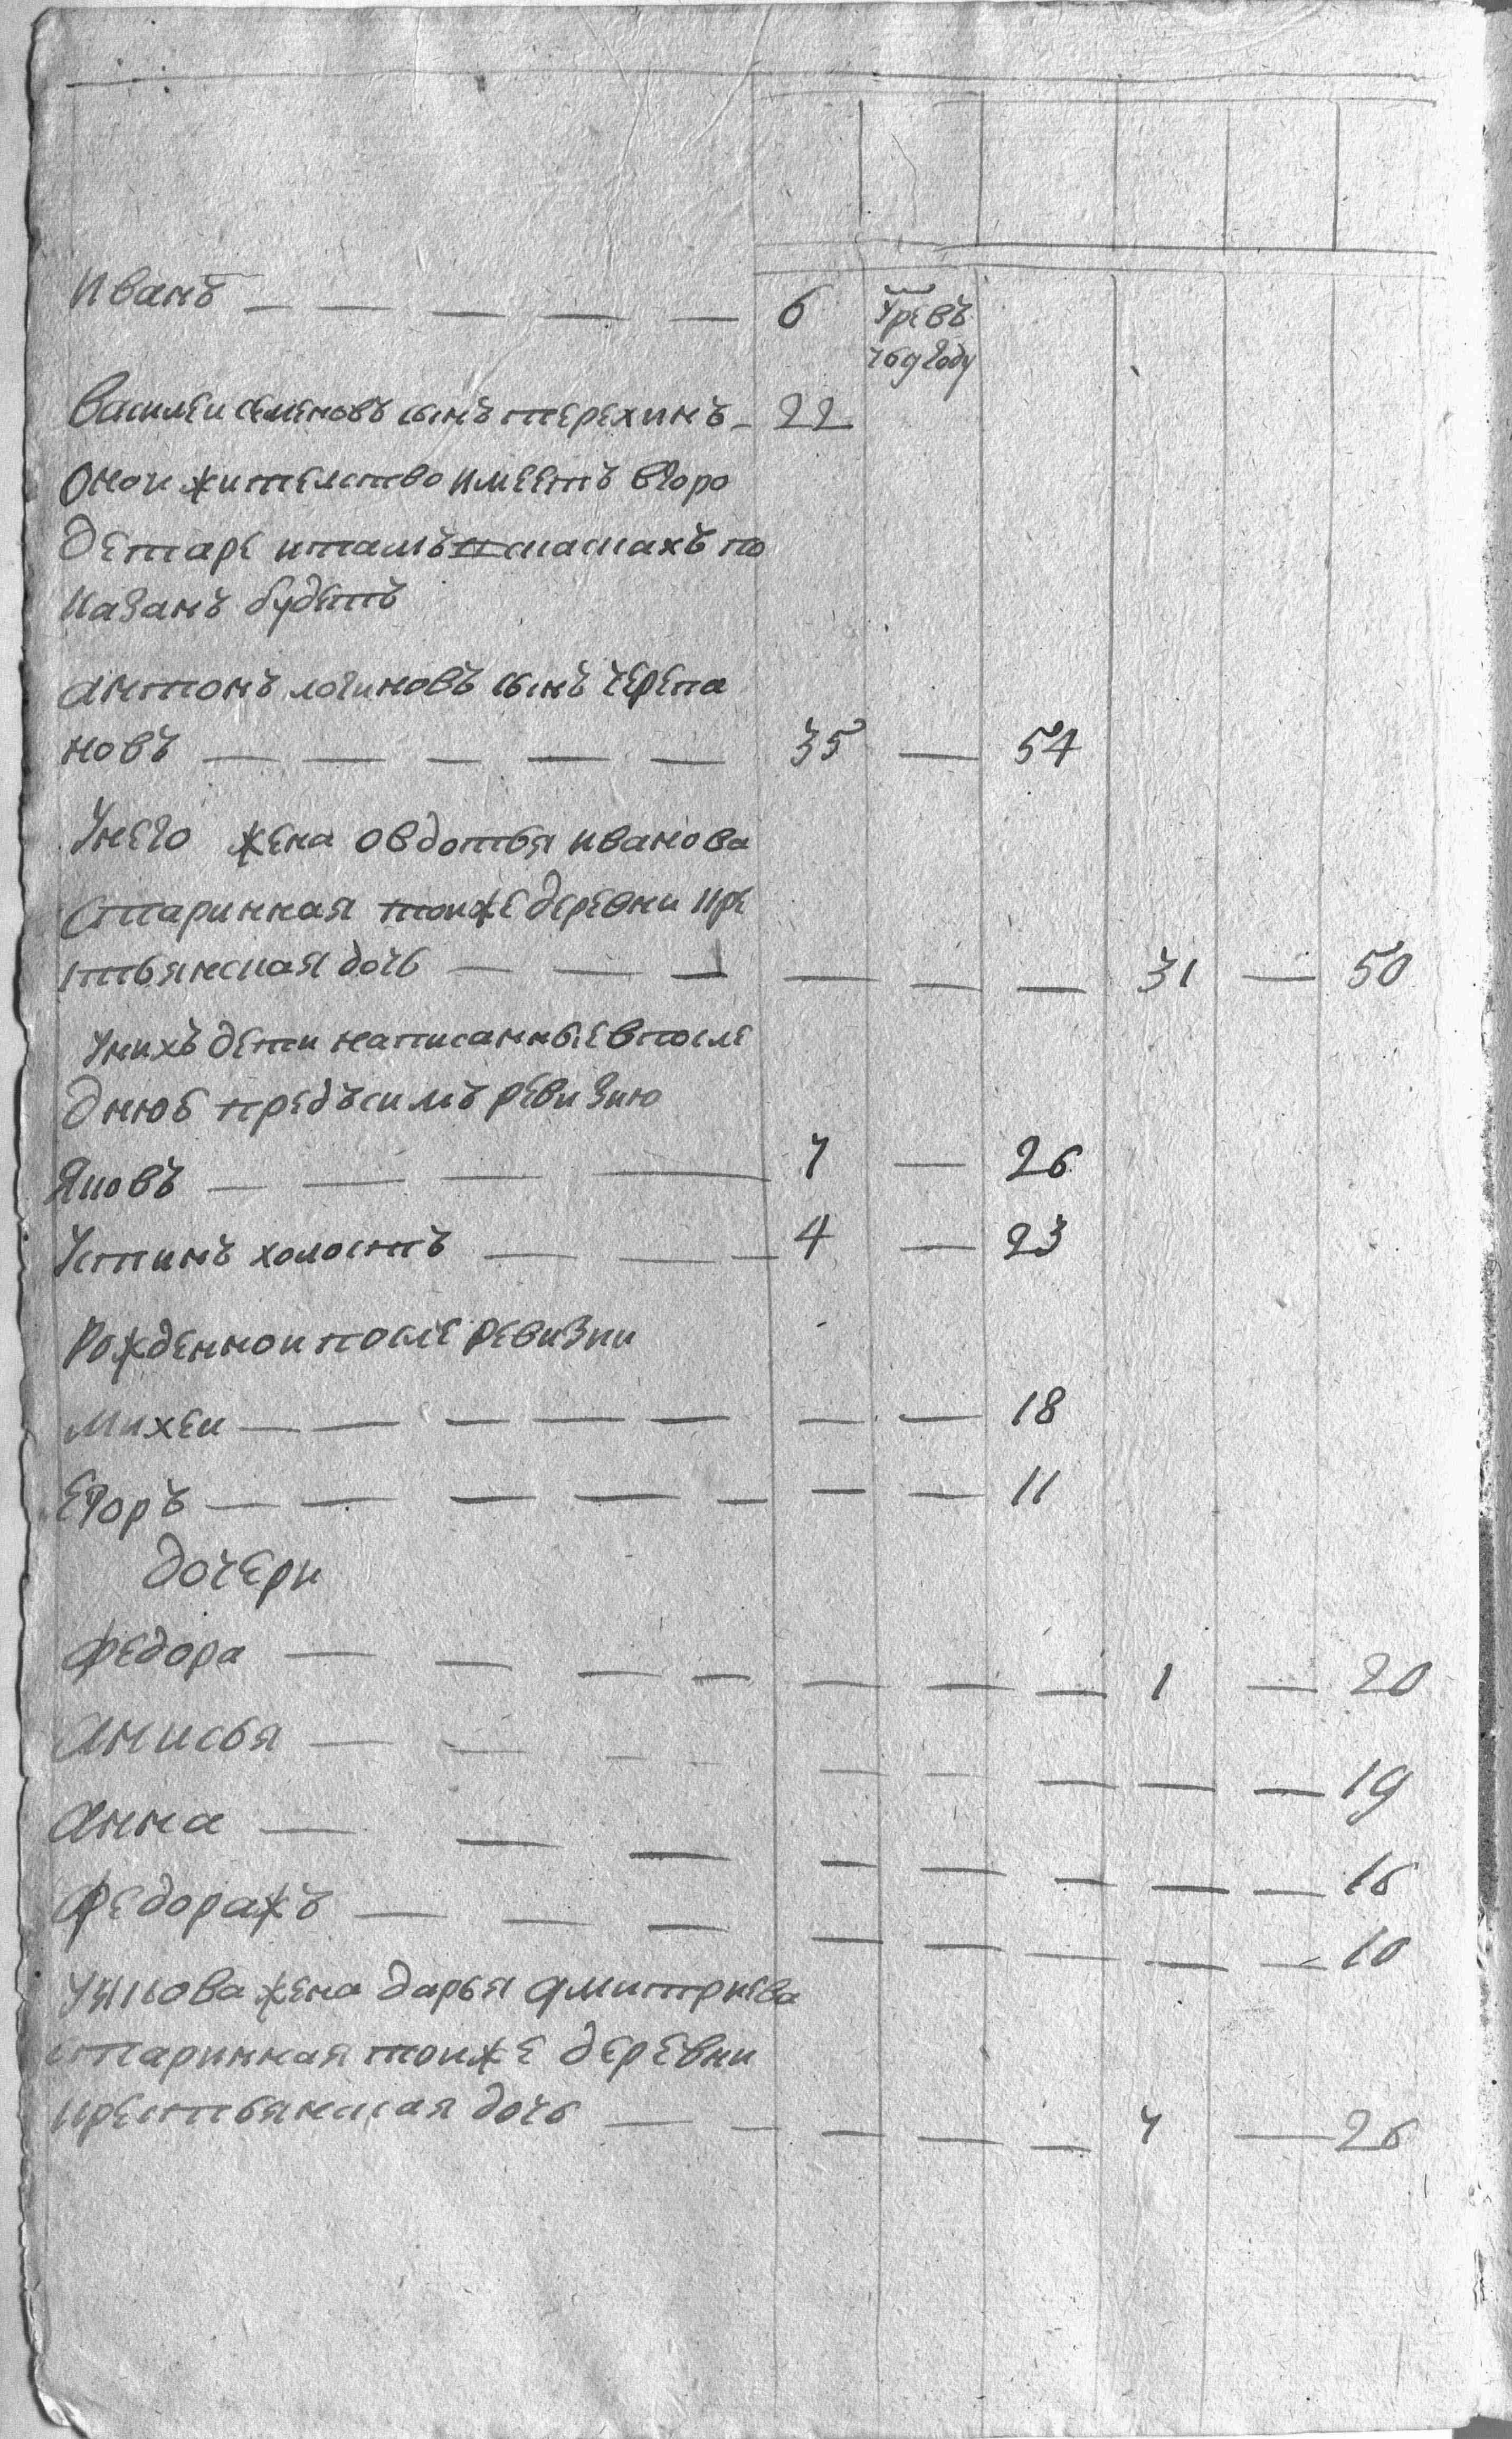 Иванъ — — — — — 6 Умревъ
769 году
Василеи семеновъ сынъ терехинъ — 22
Оной жителство имеетъ вгоро
де таре итамъ вскаскахъ по
казанъ будетъ
Антонъ логиновъ сынъ черепа
новъ — — — — — 35 — 54
Унего жена овдотья иванова
старинная тоиже деревни кре
стьянская дочь — — — — — — 31 — 50
Унихъ дети написанные впосле
днюю предъсимъ ревизию
Яковъ — — — — 7 — 26
Устинъ холостъ — — — 4 — 23
Рожденнои после ревизии
михеи — — — — — — — 18
Егоръ — — — — — — — 11
дочери
Федора — — — — — — — 1 — 20
Анисья — — — — — — — — 19
Анна — — — — — — — — 16
Федоражъ — — — — — — — — 10
Уякова жена дарья дмитриева
старинная тоиже деревни
крестьянская дочь — — — — — 7 — 26